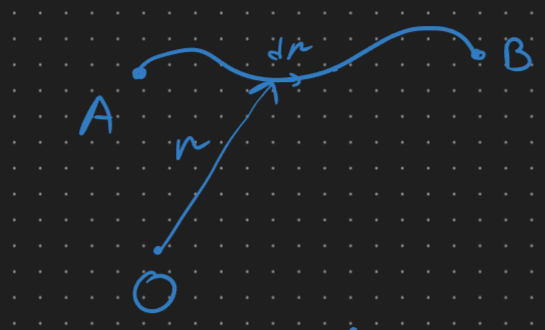 dr
B
A
r
O